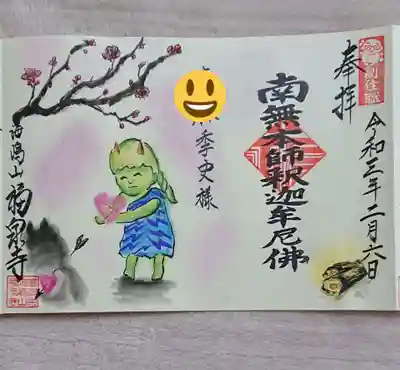 奉拝
令和三年二月六日
南無本師釈迦牟尼佛
季史様
福泉寺